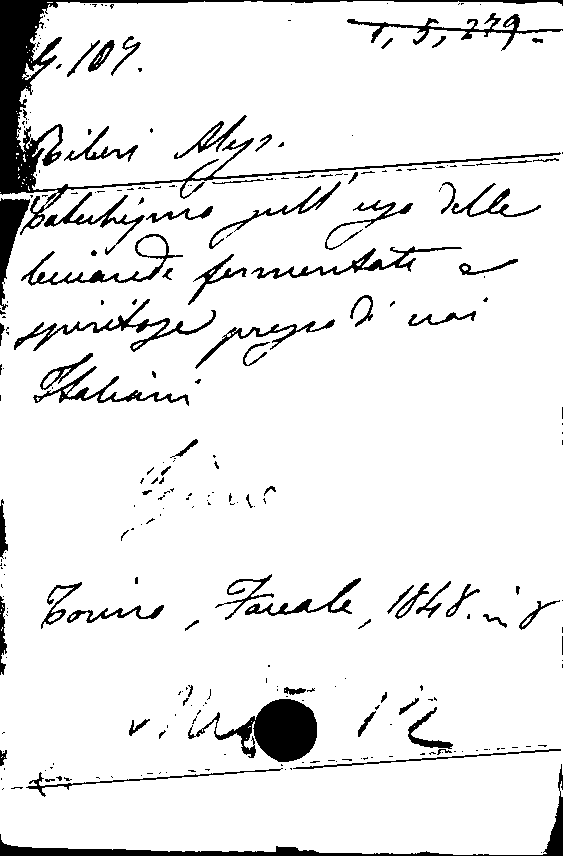 1, 5, 279.-
G. 109.
Riberi Aless.
Catechismo sull' uso delle
bevande fermentate e
spiritose presso di noi
Italiani
Igiene
Torino, Favale, 1848. in 8